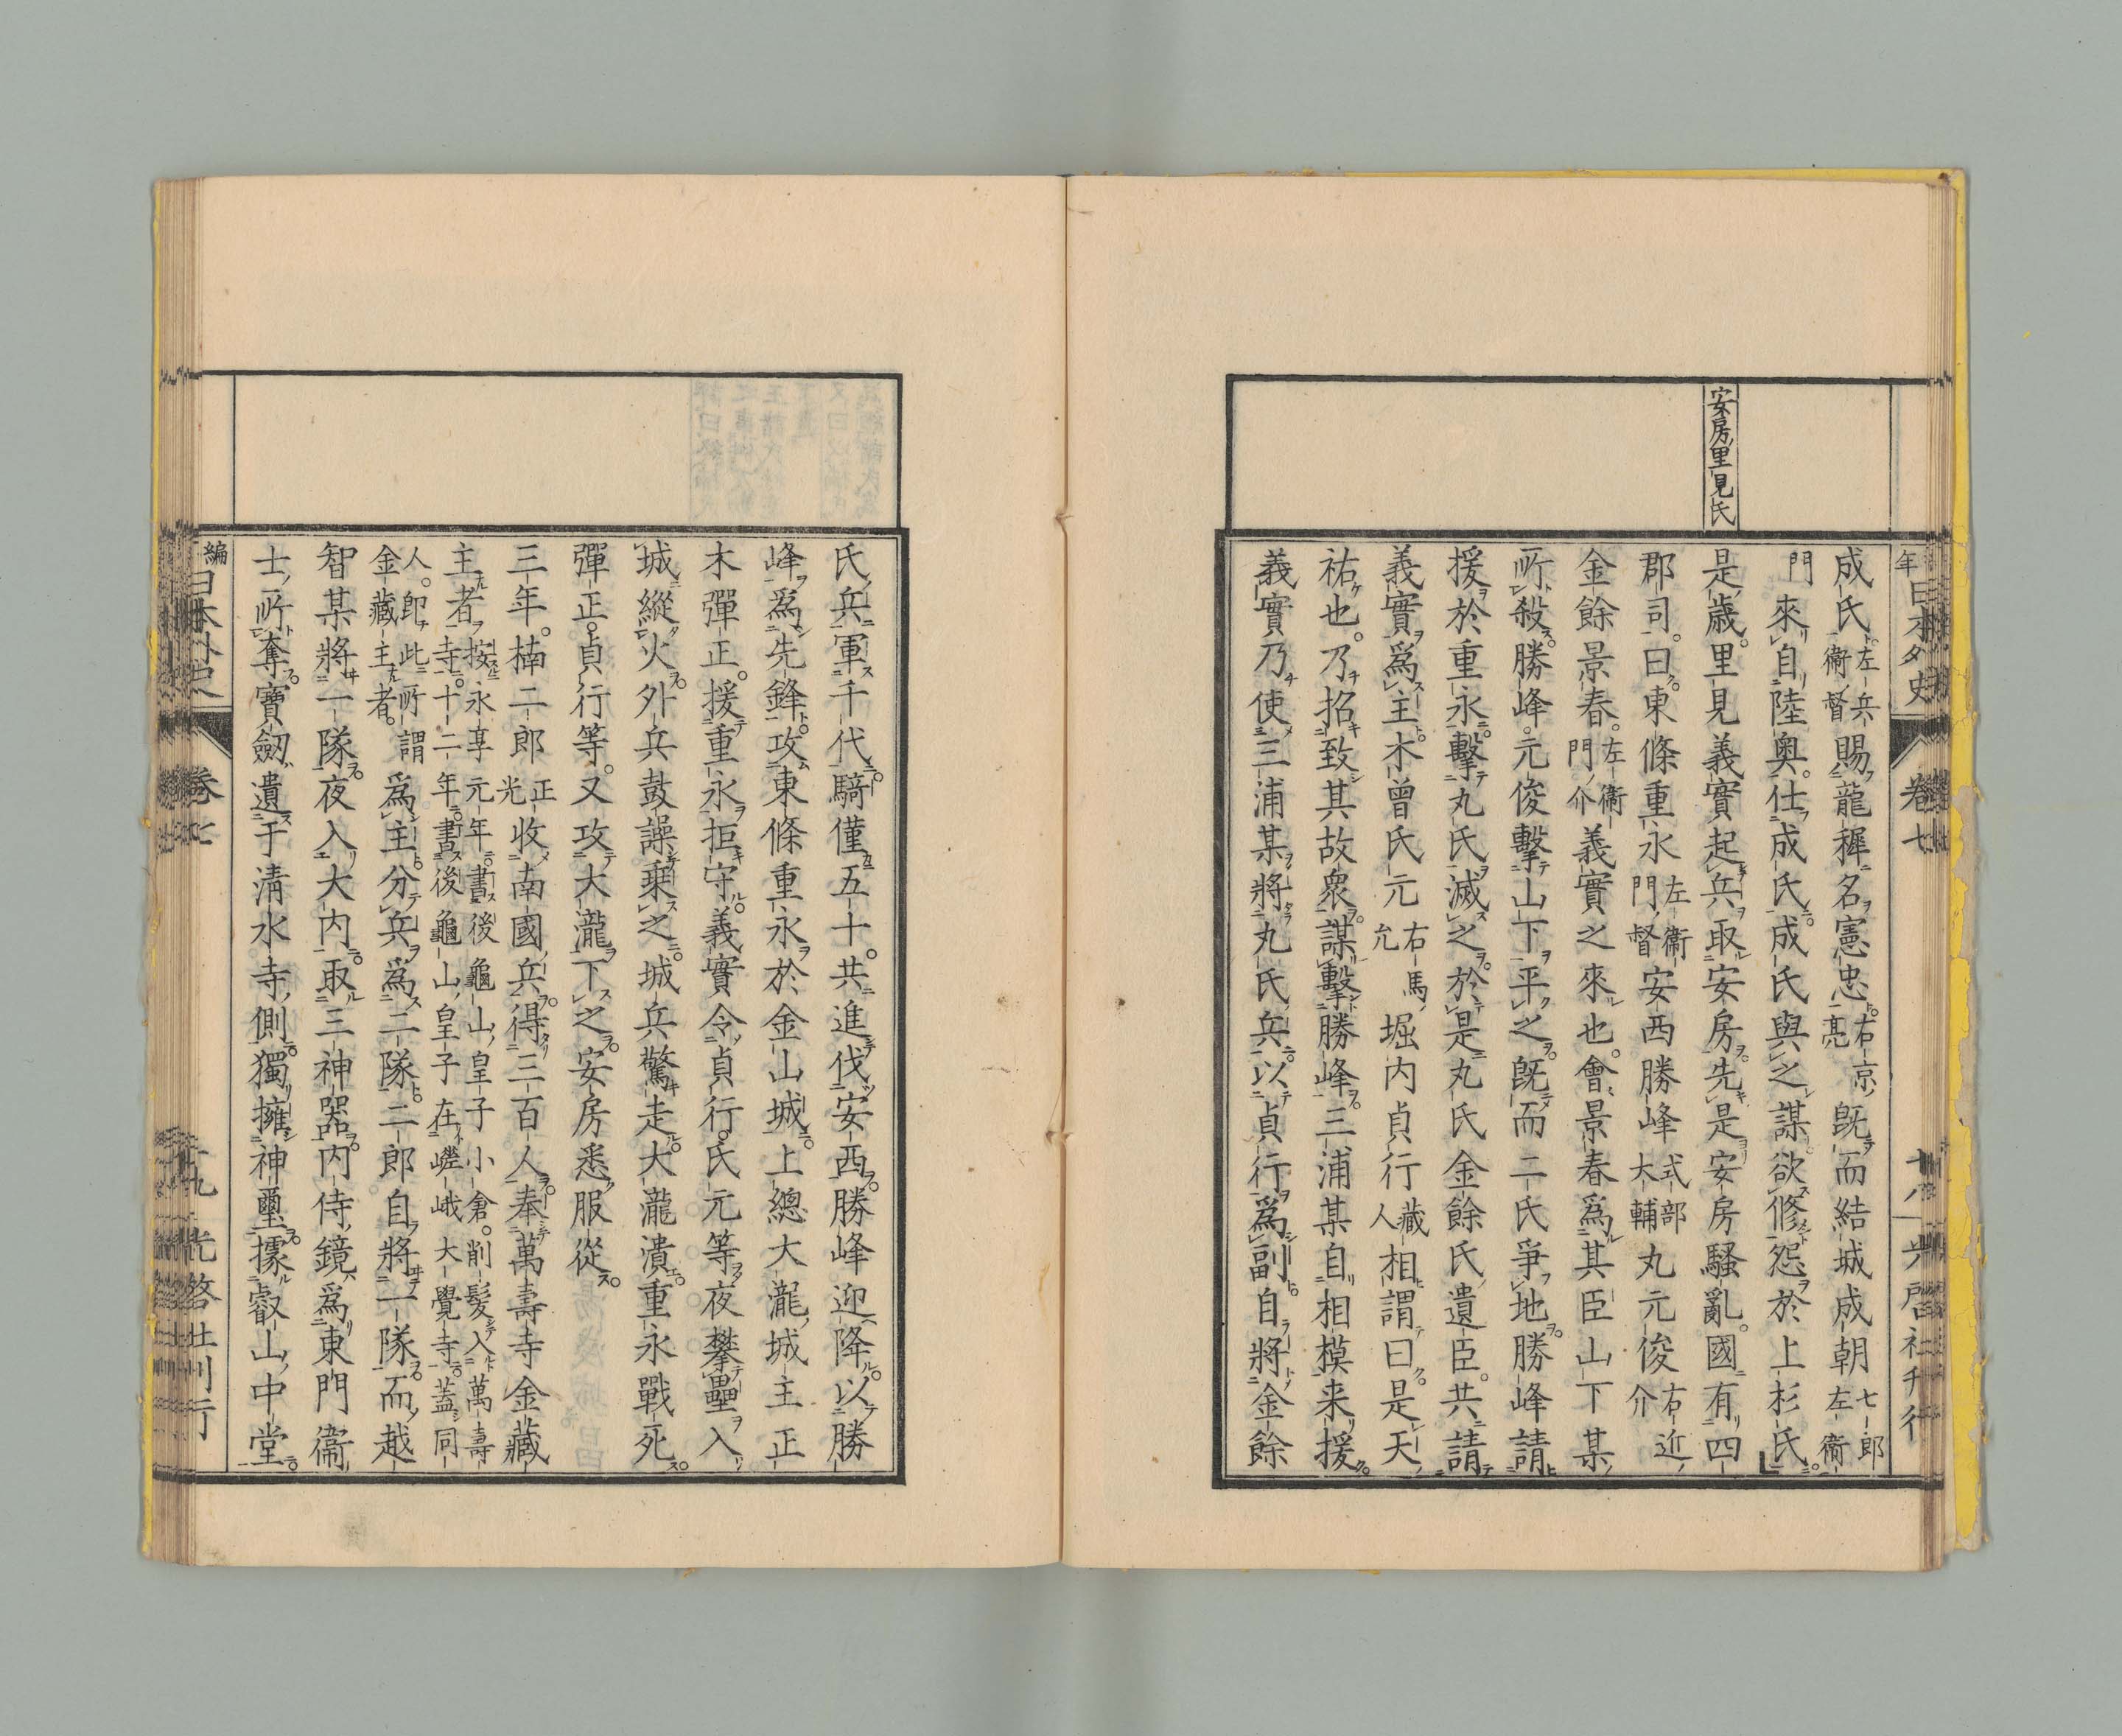 安房里見氏
成氏左兵衞督賜龍穉名憲忠右京亮旣而結城成朝七郎左衞
門來自陸奧仕成氏成氏與之謀欲修怨於上杉氏
是歲里見義實起兵取安房先是安房騷亂國有四
郡司曰東條重永左衞門督安西勝峰式部大輔丸元俊右近介
金餘景春左衞門介義實之來也會景春爲其臣山下某
所殺勝峰元俊擊山下平之旣而二氏爭地勝峰請
援於重永擊丸氏滅之於是丸氏金餘氏遺臣共請
義實爲主木曾氏元右馬允堀内貞行藏人相謂曰是天
祐也乃招致其故衆謀擊勝峰三浦某自相模来援
義實乃使三浦某將丸氏兵以貞行爲副自將金餘
氏兵軍千代騎僅五十共進伐安西勝峰迎降以勝
峰爲先鋒攻東條重永於金山城上總大瀧城主正
木彈正援重永拒守義實令貞行氏元等夜攀壘入
城縱火外兵鼓譟乗之城兵驚走大瀧潰重永戰死
彈正貞行等又攻大瀧下之安房悉服從
三年楠二郎正光收南國兵得三百人奉萬壽寺金藏
主者按永享元年書後龜山皇子小倉削髮入萬壽寺十二年書後龜山皇子在嵯峨大覺寺蓋同
人卽此所謂金藏主者爲主分兵爲二隊二郎自將一隊而越
智某將一隊夜入大内取三神器内侍鏡爲東門衞
士所奪寶劒遺于清水寺側獨擁神璽據叡山中堂
年日本外史 卷七 十八 光啓社刊行
編日本外史 卷七 十九 光啓社刊行